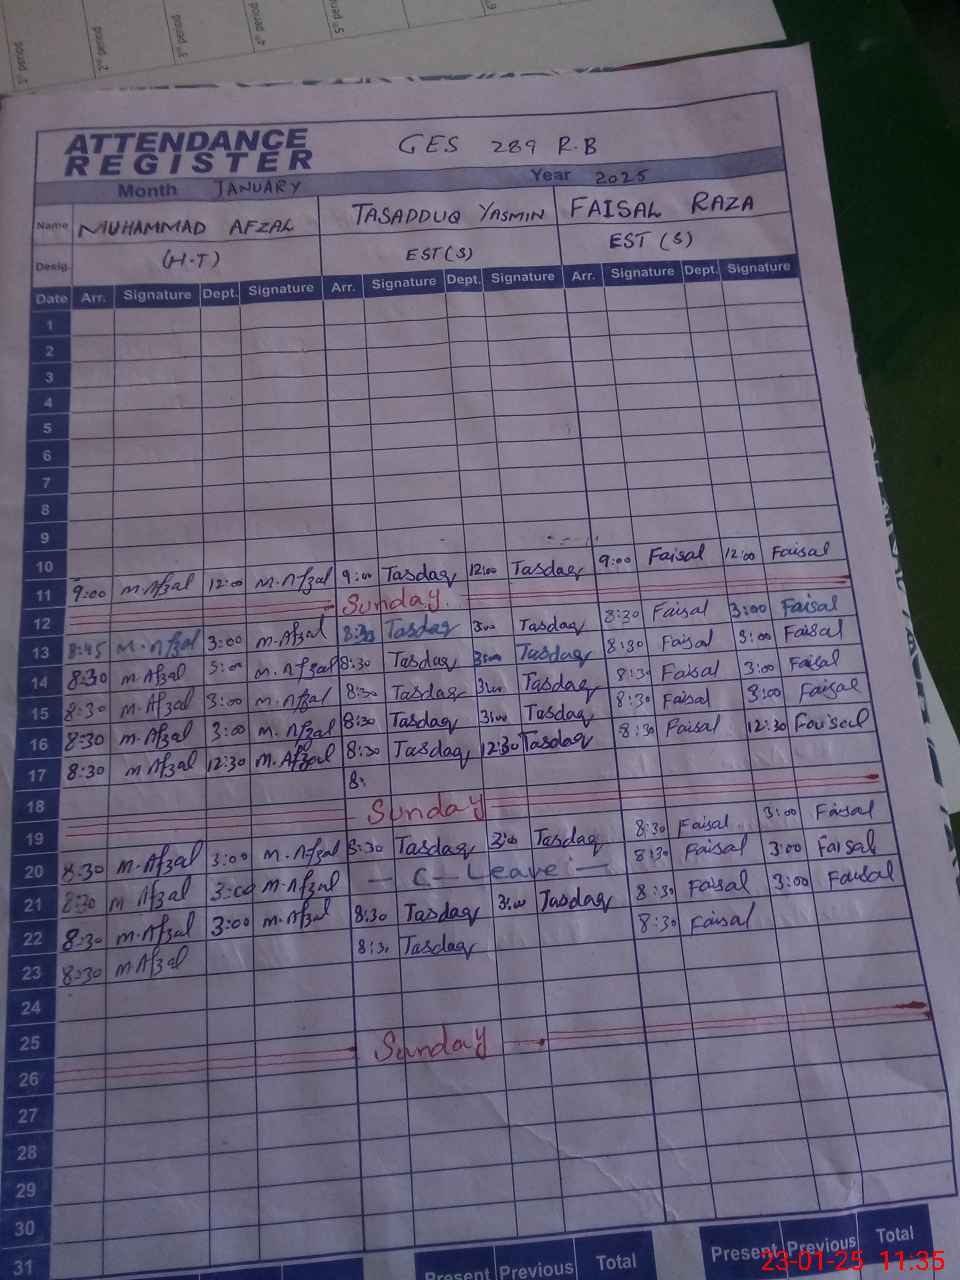 ATTENDANCE
REGISTER
GES 289 R.B
Month JANUARY Year 2025
Name MUHAMMAD AFZAL TASADDUQ YASMIN FAISAL RAZA
Desig. (H.T) EST(S) EST (S)
Date Arr. Signature Dept. Signature Arr. Signature Dept. Signature Arr. Signature Dept. Signature
1
2
3
4
5
6
7
8
9
10
11 9:00 M.Afzal 12:00 M.Afzal 9:00 Tasdaq 12:00 Tasdaq 9:00 Faisal 12:00 Faisal
12 Sunday
13 8:45 M.Afzal 3:00 M.Afzal 8:30 Tasdaq 3:00 Tasdaq 8:30 Faisal 3:00 Faisal
14 8:30 M.Afzal 3:00 M.Afzal 8:30 Tasdaq 3:00 Tasdaq 8:30 Faisal 3:00 Faisal
15 8:30 M.Afzal 3:00 M.Afzal 8:30 Tasdaq 3:00 Tasdaq 8:30 Faisal 3:00 Faisal
16 8:30 M.Afzal 3:00 M.Afzal 8:30 Tasdaq 3:00 Tasdaq 8:30 Faisal 3:00 Faisal
17 8:30 M.Afzal 12:30 M.Afzal 8:30 Tasdaq 12:30 Tasdaq 8:30 Faisal 12:30 Faisal
18 8:
19 Sunday
20 8:30 M.Afzal 3:00 M.Afzal 8:30 Tasdaq 3:00 Tasdaq 8:30 Faisal 3:00 Faisal
21 8:30 M Afzal 3:00 M.Afzal C-Leave 8:30 Faisal 3:00 Faisal
22 8:30 M.Afzal 3:00 M.Afzal 8:30 Tasdaq 3:00 Tasdaq 8:30 Faisal 3:00 Faisal
23 8:30 M.Afzal 8:30 Tasdaq 8:30 Faisal
24
25
26 Sunday
27
28
29
30
31
Present Previous Total Present Previous Total
23-01-25 11:35